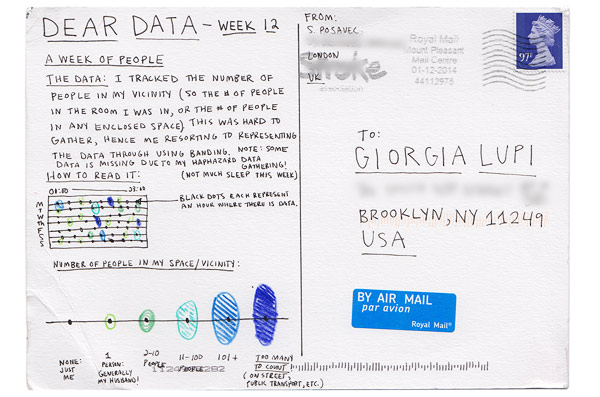 DEAR DATA - WEEK 12
A WEEK OF PEOPLE
THE DATA: I TRACKED THE NUMBER OF
PEOPLE IN MY VICINITY (SO THE # OF PEOPLE
IN THE ROOM I WAS IN, OR THE # OF PEOPLE
IN ANY ENCLOSED SPACE) THIS WAS HARD TO
GATHER, HENCE ME RESORTING TO REPRESENTING
THE DATA THROUGH USING BANDING. NOTE: SOME
DATA IS MISSING DUE TO MY HAPHAZARD DATA
GATHERING!
(NOT MUCH SLEEP THIS WEEK)
HOW TO READ IT:
M
T
W
T
F
S
S
BLACK DOTS EACH REPRESENT
AN HOUR WHERE THERE IS DATA.
NUMBER OF PEOPLE IN MY SPACE/VICINITY:
NONE:
JUST
ME
1
PERSON:
GENERALLY
MY HUSBAND!
2-10
PEOPLE
11-100
PEOPLE
101+
TOO MANY
TO COUNT
(ON STREET,
PUBLIC TRANSPORT, ETC.)
FROM:
S. POSAVEC
LONDON
UK
Royal Mail
Mount Pleasant
Mail Centre
01-12-2014
44112975
97p
TO:
GIORGIA LUPI
BROOKLYN, NY 11249
USA
BY AIR MAIL
par avion
Royal Mail®